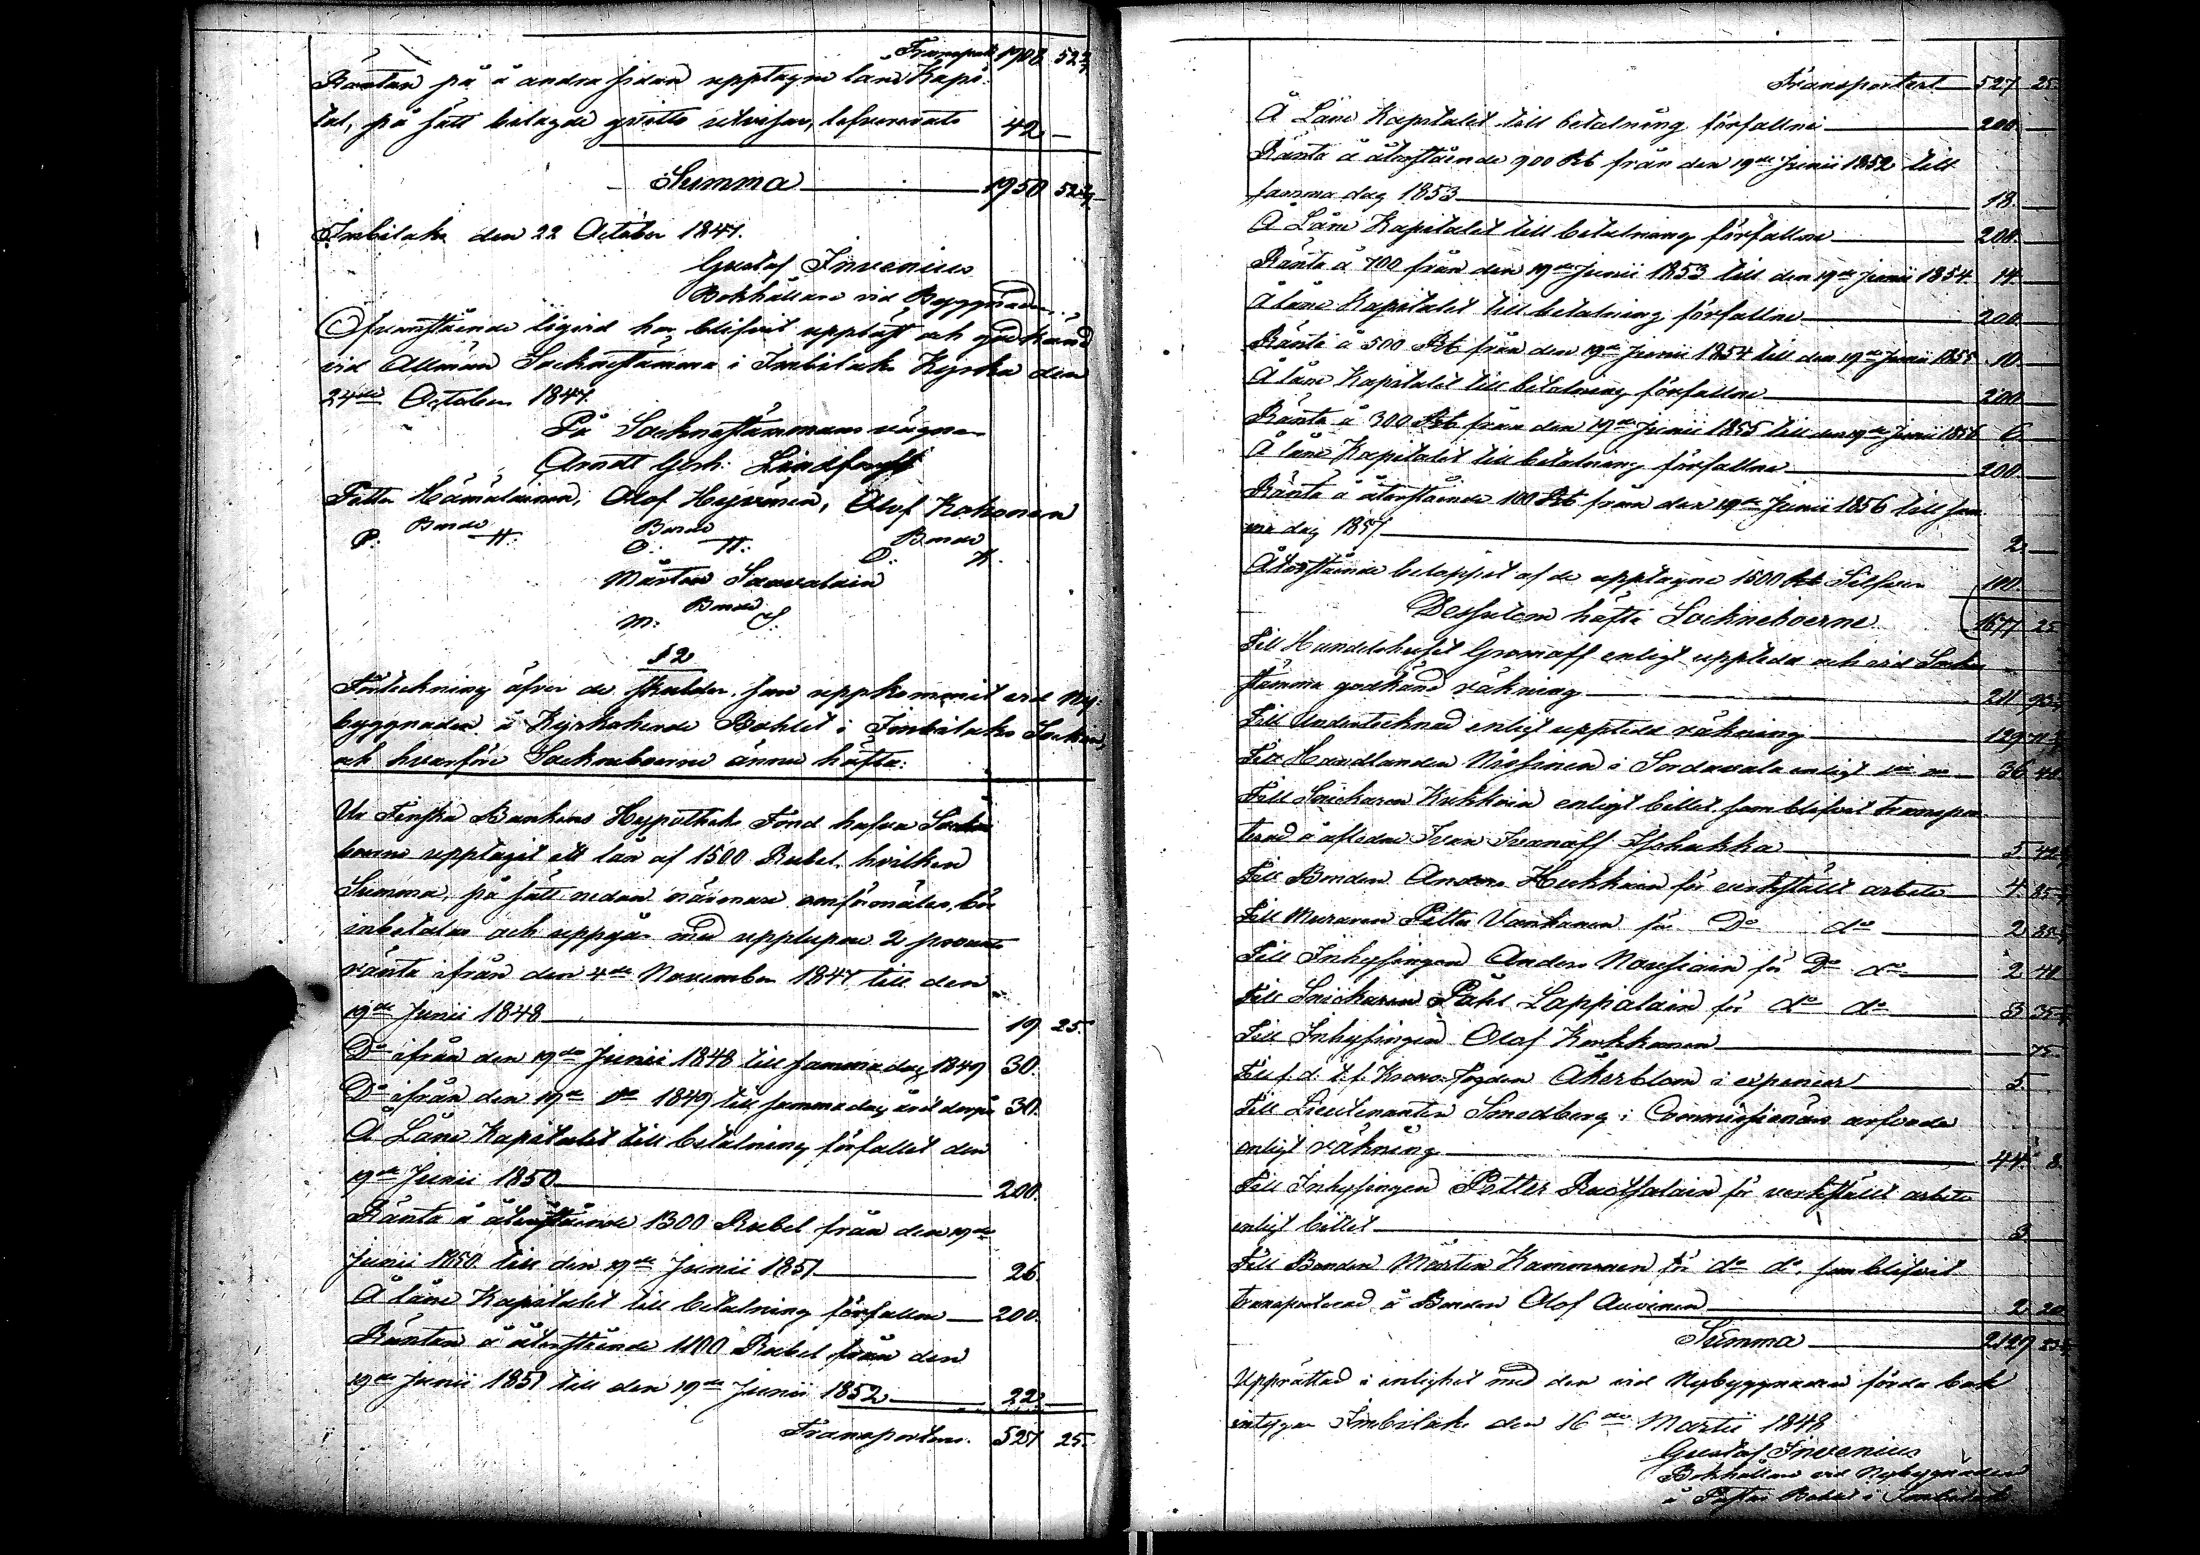 Transport 1908 52 2/7
Räntan på å andra sidan upptagne låne Kapi-
tal, på sätt bilagde qvitto utvisar, lefvererats 42 —
Summa 1950 52 2/7
Imbilaks den 22 October 1847.
Gustaf Invenius
Bokhållare vid Byggnaden
Ofvanstående liqvid har blifvit uppläst och godkänd
vid Allmän Sockenstämma i Imbilaks Kyrka den
24de October 1847.
På Sockenstämmans vägnar
Arndt Gbsh: Lindforss
Petter Hämäläinen, Olof Hyvönen, Olof Kokonen
Bonde Bonde Bonde
P: H: O: H: O: K.
Mårten Saavalain
Bonde
M: S:
§ 2
Förteckning öfver de skulder, som uppkommit vid Ny-
byggnaden å Kyrkoherde Bohlet i Imbilaks Socken,
och hvarföre Sockneboerne ännu häfta:
Ur Finska Bankens Hypotheks Fond hafva Sockne
boerne upptagit ett lån af 1500 Rubel, hvilken
Summa, på sätt nedan närmare omförmäles, bör
inbetalas och uppgår med upplupen 2 procents
ränta ifrån den 4de November 1847 till den
19de Junii 1848 19 25.
Do ifrån den 19de Junii 1848 till samma dag 1849 30.
Do ifrån den 19de do 1849 till samma dag året derpå 30.
Å Låne Kapitalet till betalning förfallet den
19de Junii 1850 200.
Ränta å återstående 1300 Rubel från den 19de
Junii 1850 till den 19de Junii 1851 26.
Å låne Kapitalet till betalning förfallne 200.
Räntan å återstående 1100 Rubel från den
19de Junii 1851 till den 19de Junii 1852 22
Transporteras. 527 25.
Transporterat 527 25
Å Låne Kapitalet till betalning förfallne 200.
Ränta å återstående 900 Rb från den 19de Junii 1852 till
samma dag 1853 18.
Å Låne Kapitalet till betalning förfallne 200.
Ränta å 700 från den 19de Junii 1853 till den 19de Junii 1854. 14.
Å låne Kapitalet till betalning förfallne 200
Ränta å 500 Rb från den 19de Junii 1854 till den 19de Junii 1855 10.
Å låne Kapitalet till betalning förfallne 200
Ränta å 300 Rb från den 19de Junii 1855 till den 19de Junii 1856 6.
Å låne Kapitalet till betalning förfallne 200.
Ränta å återstående 100 Rb från den 19de Junii 1856 till sam
ma dag 1857 2
Återstående beloppet af de upptagne 1500 Rb Silfver 100.
Dessutom häfta Sockneboerne 1677 25
Till Handelshuset Gromoff enligt uppteda och vid Socken
stämma godkänd räkning 211
Till Undertecknad enligt uppteda räkning 129
Till Handlanden Nissinen i Sordavala enligt do do 36
Till Snickaren Kukkoin enligt billet som blifvit transpor
terad å afledne Ivan Ivanoff Ischukka 5
Till Bonden Anders Kukkoin för verkställt arbete 4
Till Muraren Petter Vänkänen för Do do 2
Till Inhysingen Anders Nousiain för Do do 2 40
Till Snickaren Påhl Lappalain för do do 3
Till Inhysingen Olof Korkkonen 75
Till f. d. t. f. Krono-fogden Åkerblom i expenser 5
Till Lieutenanten Smedberg i Commissionärs arfvode
enligt räkning 44 8
Till Inhysingen Petter Ruotsalain för verkställt arbete
enligt billet 3
Till Bonden Mårten Kammonen för do do som blifvit
transporterad å Bonden Olof Auvinen 2 20
Summa 2127
Upprättad i enlighet med den vid Nybyggnaden förda bok
intygar Imbilaks den 16de Martii 1848
Gustaf Invenius
Bokhållare vid Nybyggnaden
å Pastors Bohlet i Imbilaks